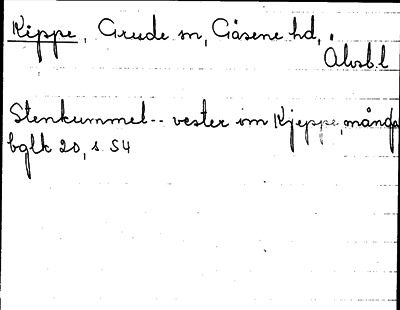 Kippe, Grude sn, Gäsene hd,
Älvsb.l
Stenkummel -- vester om Kjeppe, många
bglk 20, s. 54